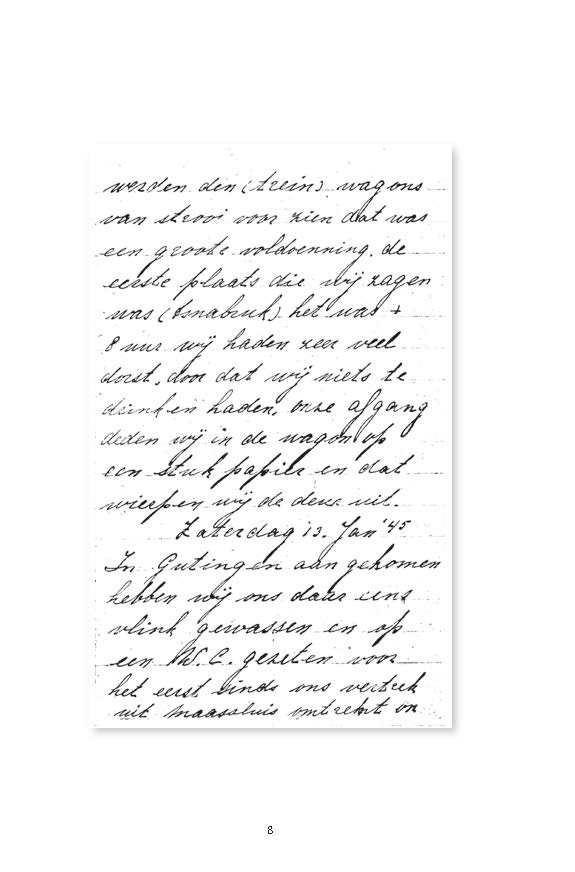 werden den (trein) wagons
van strooi voor zien dat was
een groote voldoenning. de
eerste plaats die wij zagen
was (Osnabruk) het was +
8 uur wij haden zeer veel
dorst, door dat wij niets te
drinken haden, onze afgang
deden wij in de wagon op
een stuk papier en dat
wierpen wij de deur uit.
Zaterdag 13. Jan '45
In Gutingen aan gekomen
hebben wij ons daar eens
vlink gewassen en op
een W.C. gezeten voor
het eerst sinds ons vertrek
uit maassluis omtrent on
8